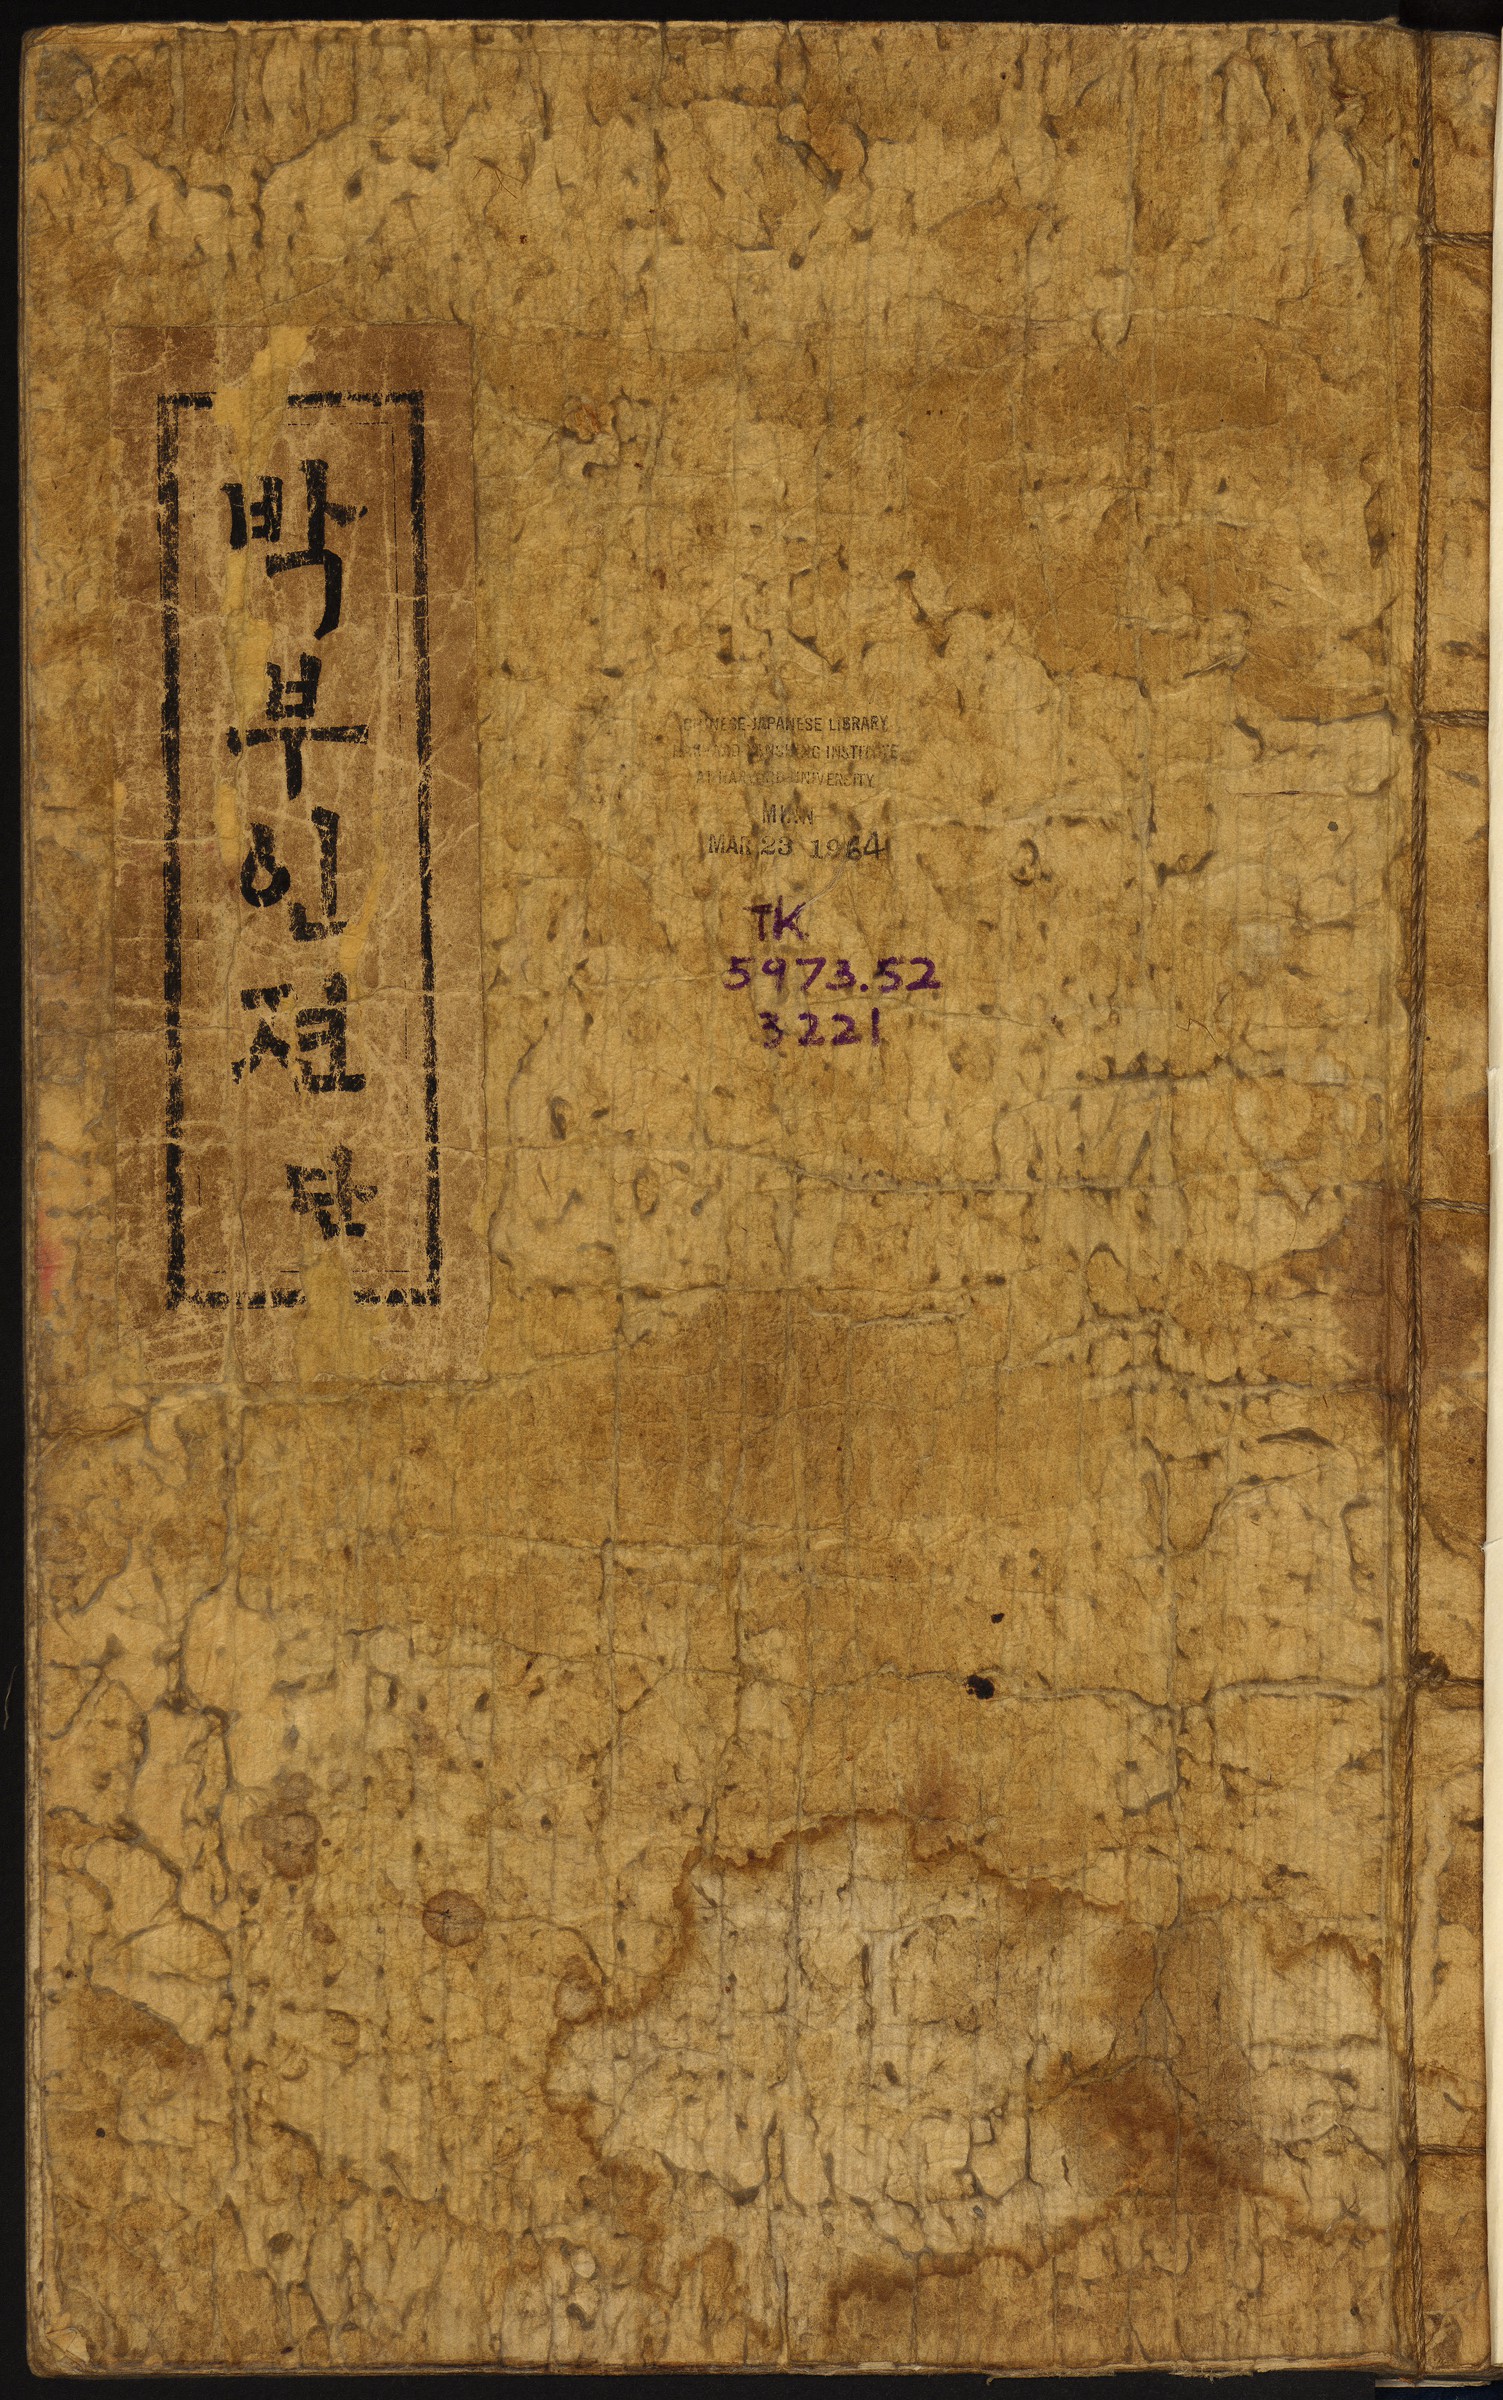 박부인전 단
CHINESE-JAPANESE LIBRARY
HARVARD YENCHING INSTITUTE
AT HARVARD UNIVERSITY
MAR 23 1964
TK
5973.52
3221